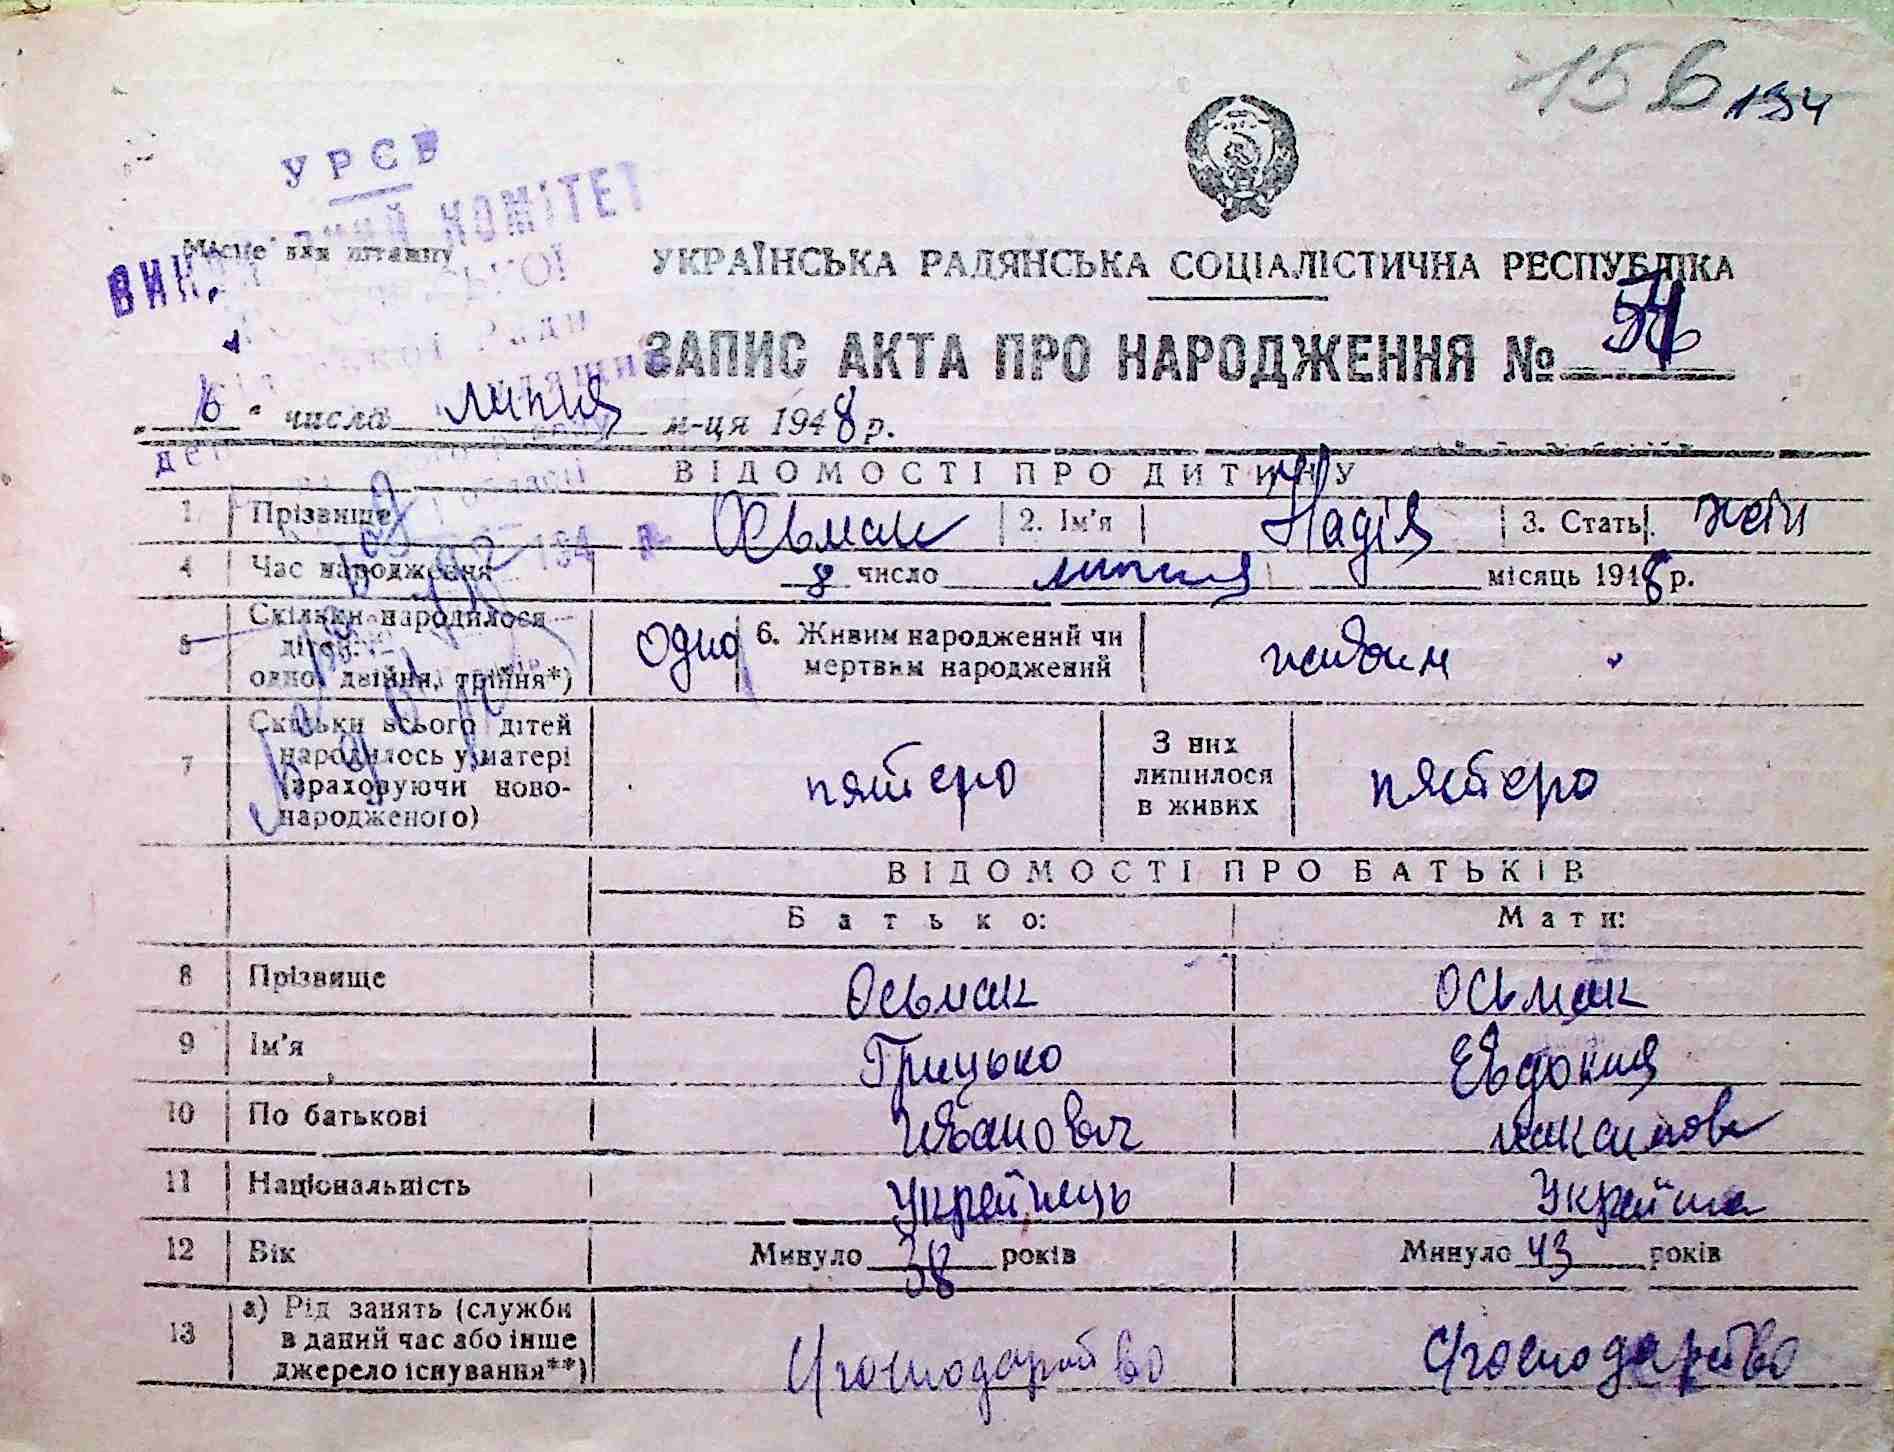 15 6 194
УРСР
ВИНИ КОМІТЕТ
Місце для штампу
УКРАЇНСЬКА РАДЯНСЬКА СОЦІАЛІСТИЧНА РЕСПУБЛІКА
ЗАПИС АКТА ПРО НАРОДЖЕННЯ №
„ 16 " числа липня м-ця 1948 р.
ВІДОМОСТІ ПРО ДИТИНУ
1 Прізвище Осьмак 2. Ім'я Надія 3. Стать жін
4 Час народження 8 число липня місяць 1948 р.
5 Скільки народилося дітей: одно, двійня, трійня*) одно 6. Живим народжений чи мертвим народжений живим
7 Скільки всього дітей народилось у матері (враховуючи новонародженого) пятеро З них лишилося в живих пятеро
ВІДОМОСТІ ПРО БАТЬКІВ
Батько: Мати:
8 Прізвище Осьмак Осьмак
9 Ім'я Грицько Евдокия
10 По батькові Иванович максимовн
11 Національність Украйнець Украйнка
12 Вік Минуло 38 років Минуло 43 років
13 а) Рід занять (служби в даний час або інше джерело існування**) с/господарство с/господарство